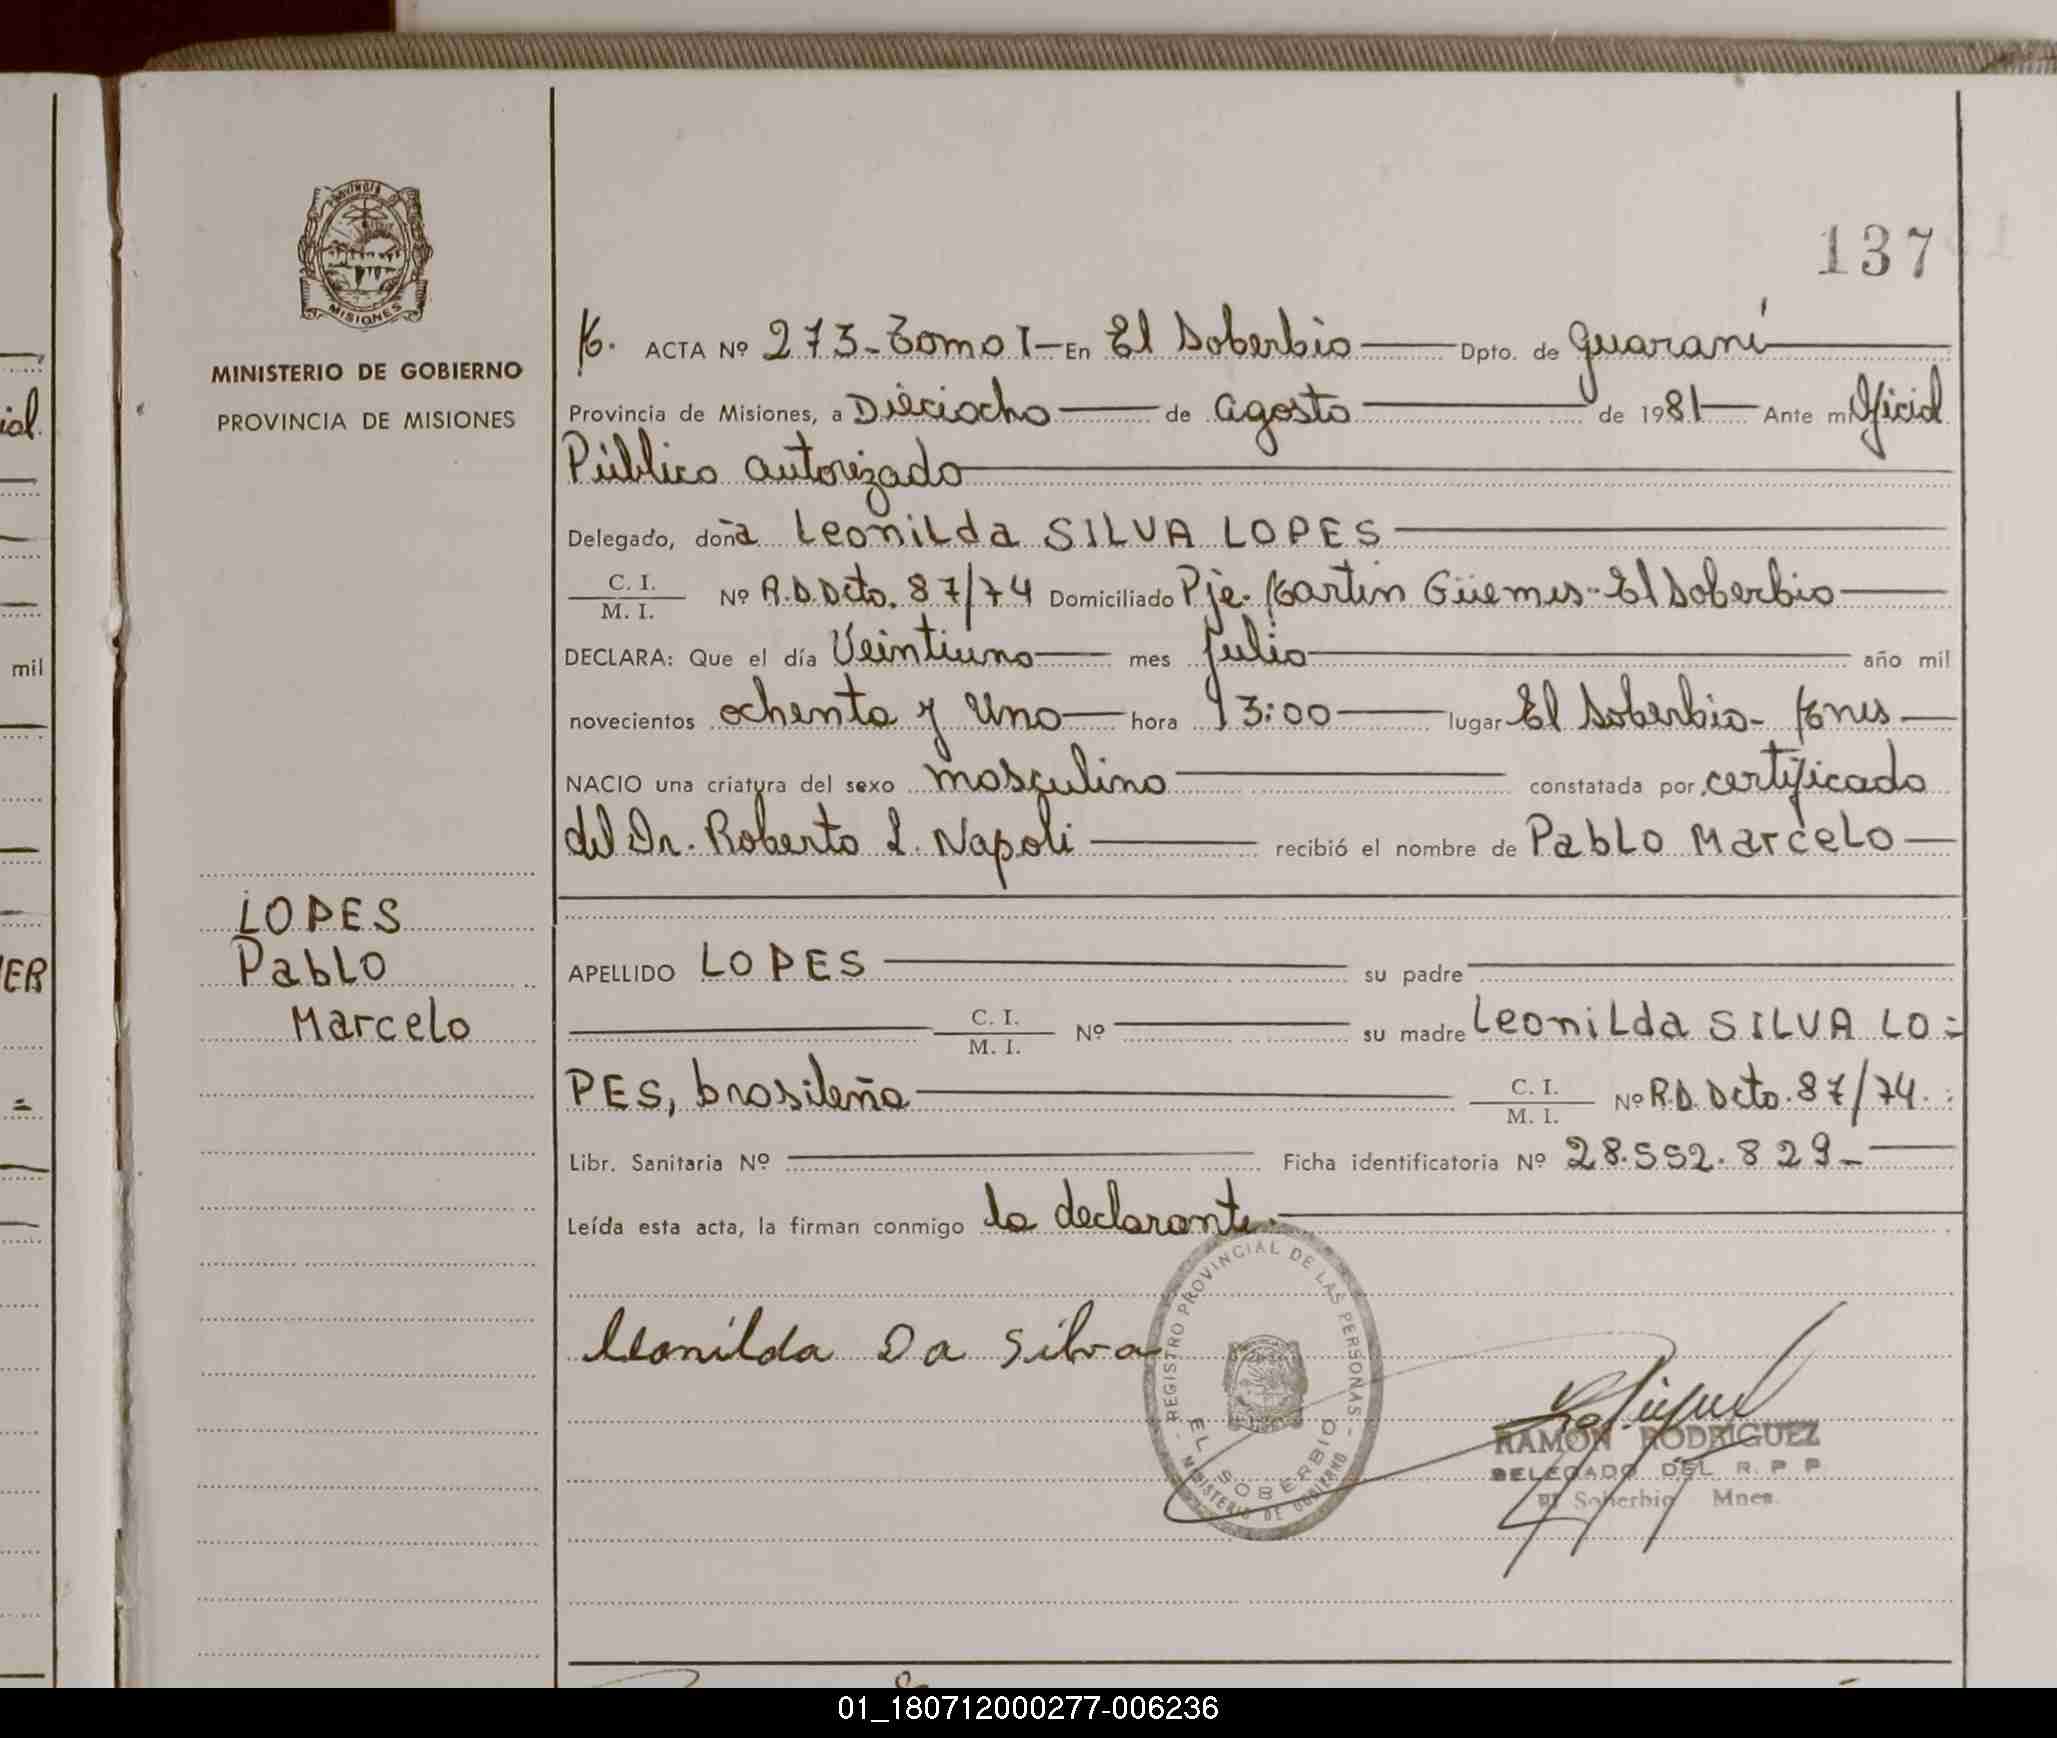 137
MISIONES
MINISTERIO DE GOBIERNO
PROVINCIA DE MISIONES
M. ACTA Nº 273-Tomo I- En El Soberbio Dpto. de Guaraní
Provincia de Misiones, a Dieciocho de agosto de 1981 Ante mi Oficial
Público autorizado
Delegado, doña Leonilda SILVA LOPES
C. I.
M. I.
Nº R.D.Dcto. 87/74 Domiciliado Pje. Martin Güemes-El Soberbio
DECLARA: Que el día Veintiuno mes Julio año mil
novecientos ochenta y uno hora 13:00 lugar El Soberbio- Mnes
NACIO una criatura del sexo masculino constatada por certificado
del Dr. Roberto L. Napoli recibió el nombre de Pablo Marcelo
LOPES
Pablo
Marcelo
APELLIDO LOPES su padre
C. I.
M. I.
Nº su madre Leonilda SILVA LO=
PES, brasileña
C. I.
M. I.
Nº R.D. Dcto. 87/74.
Libr. Sanitaria Nº Ficha identificatoria Nº 28.552.829-
Leída esta acta, la firman conmigo la declarante.
Leonilda Da Silva
REGISTRO PROVINCIAL DE LAS PERSONAS
EL SOBERBIO
MINISTERIO DE GOBIERNO
RAMON RODRIGUEZ
DELEGADO DEL R. P P
El Soberbio Mnes.
01_180712000277-006236